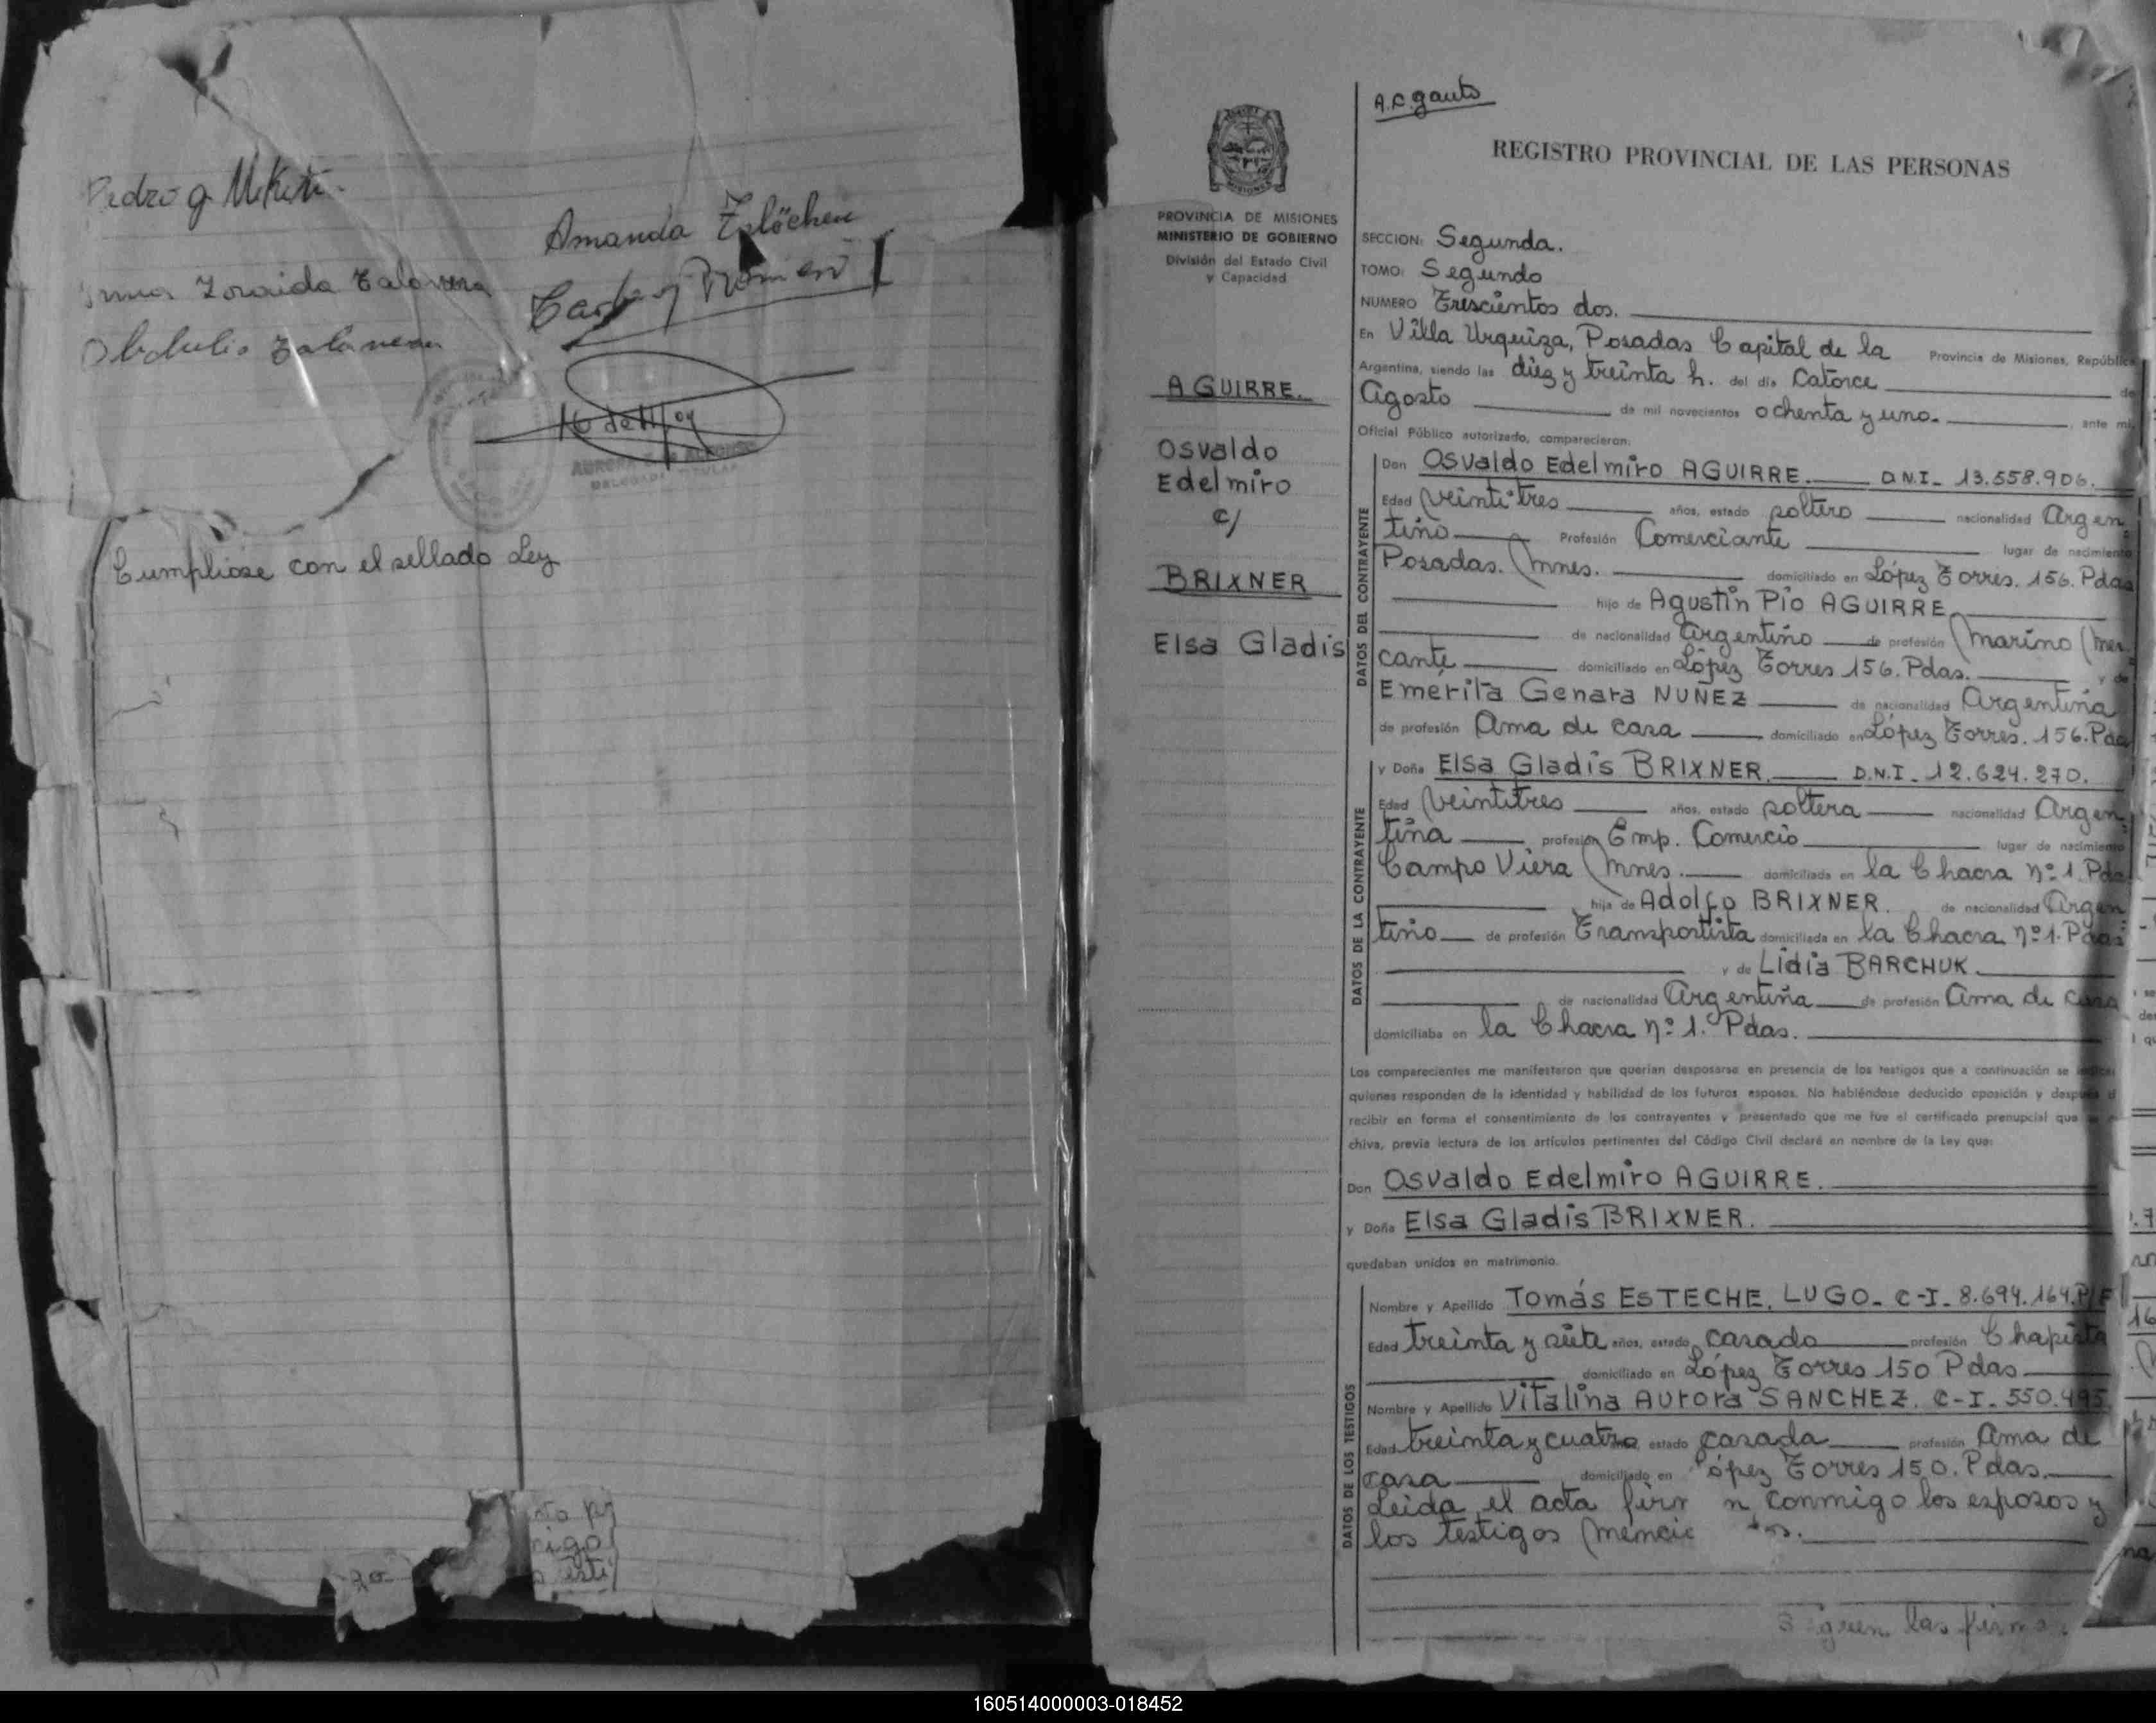 Pedro g Mikiti.
Amanda
Zoraida Talavera
Carlos
Obdulio Talavera
AURORA
DELEGADA TITULAR
Cumpliose con el sellado Ley
A.C. gauto
REGISTRO PROVINCIAL DE LAS PERSONAS
MISIONES
PROVINCIA DE MISIONES
MINISTERIO DE GOBIERNO
División del Estado Civil
y Capacidad
AGUIRRE.
Osvaldo
Edelmiro
c/
BRIXNER
Elsa Gladis
SECCION: Segunda.
TOMO: Segundo
NUMERO Trescientos dos.
En Villa Urquiza, Posadas Capital de la Provincia de Misiones, República
Argentina, siendo las diez y treinta h. del día Catorce de
Agosto de mil novecientos ochenta y uno. , ante mí,
Oficial Público autorizado, comparecieron:
DATOS DEL CONTRAYENTE
Don Osvaldo Edelmiro AGUIRRE. D.N.I. 13.558.906.
Edad Veintitres años, estado soltero nacionalidad Argen
tino Profesión Comerciante lugar de nacimiento
Posadas. Mnes. domiciliado en López Torres. 156. Pdas
hijo de Agustín Pío AGUIRRE
de nacionalidad Argentino de profesión Marino Mer
cante domiciliado en López Torres 156. Pdas. y de
Emérita Genara NUÑEZ de nacionalidad Argentina
de profesión Ama de casa domiciliado en López Torres. 156. Pdas
DATOS DE LA CONTRAYENTE
y Doña Elsa Gladis BRIXNER. D.N.I. 12.624.270.
Edad Veintitres años, estado soltera nacionalidad Argen
tina profesión Emp. Comercio lugar de nacimiento
Campo Viera Mnes. domiciliada en la Chacra nº 1. Pdas
hija de Adolfo BRIXNER. de nacionalidad Argen
tino de profesión Transportista domiciliada en la Chacra nº 1. Pdas
y de Lidia BARCHUK.
de nacionalidad Argentina de profesión Ama de casa
domiciliaba en la Chacra nº 1. Pdas.
Los comparecientes me manifestaron que querían desposarse en presencia de los testigos que a continuación se
quienes responden de la identidad y habilidad de los futuros esposos. No habiéndose deducido oposición y después d
recibir en forma el consentimiento de los contrayentes y presentado que me fue el certificado prenupcial que
chiva, previa lectura de los artículos pertinentes del Código Civil declaré en nombre de la Ley que:
Don Osvaldo Edelmiro AGUIRRE.
y Doña Elsa Gladis BRIXNER.
quedaban unidos en matrimonio.
DATOS DE LOS TESTIGOS
Nombre y Apellido Tomás ESTECHE. LUGO. C-I. 8.694.164. P/F
Edad treinta y siete años, estado casado profesión Chapista
domiciliado en López Torres 150 Pdas
Nombre y Apellido Vitalina Aurora SANCHEZ. C-I. 550.495
Edad treinta y cuatro estado casada profesión Ama de
casa domiciliado en López Torres 150. Pdas.
Leida el acta firm n conmigo los esposos y
los testigos
Siguen las firma.
160514000003-018452